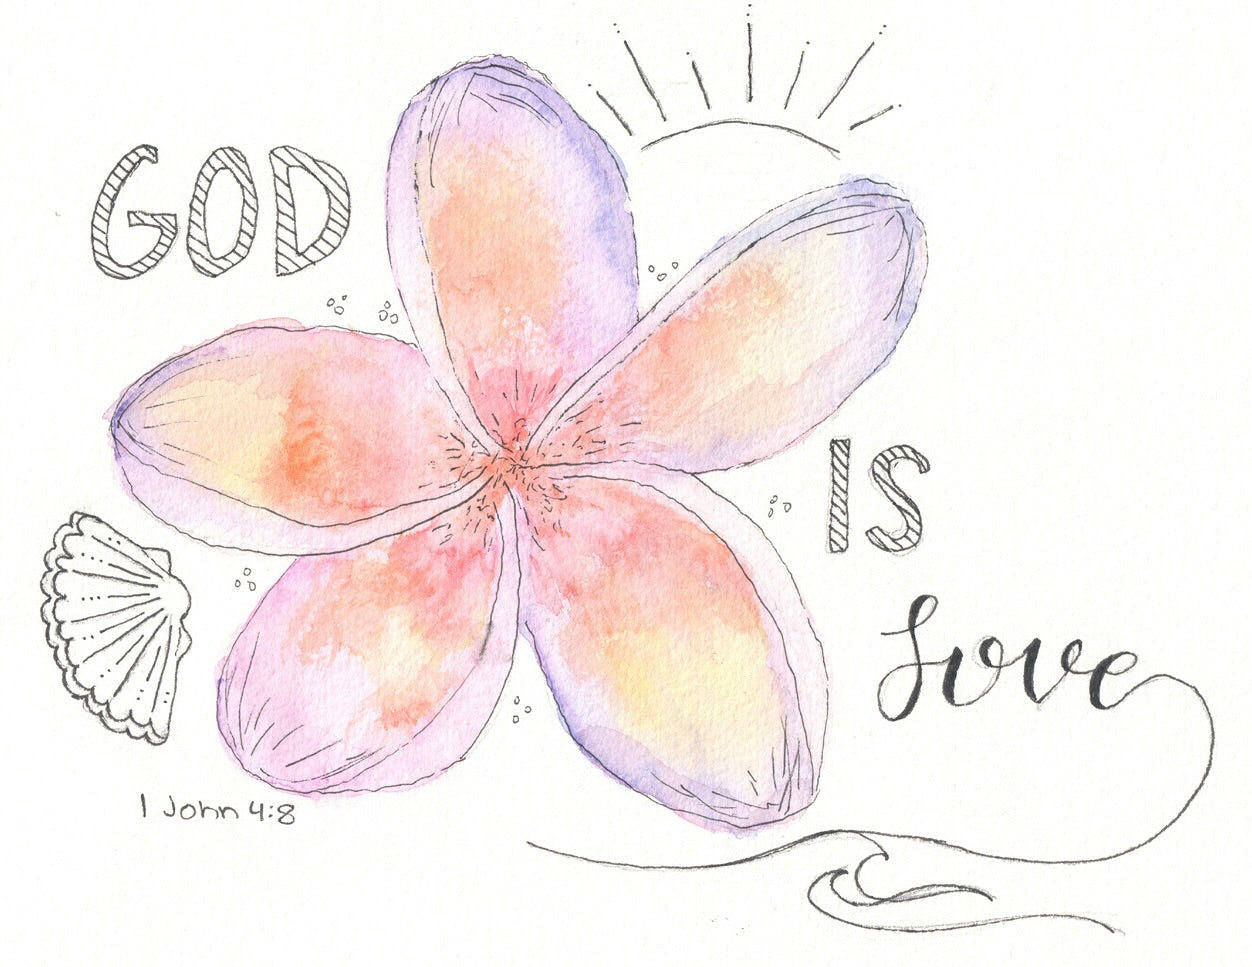 GOD
IS
Love
1 John 4:8